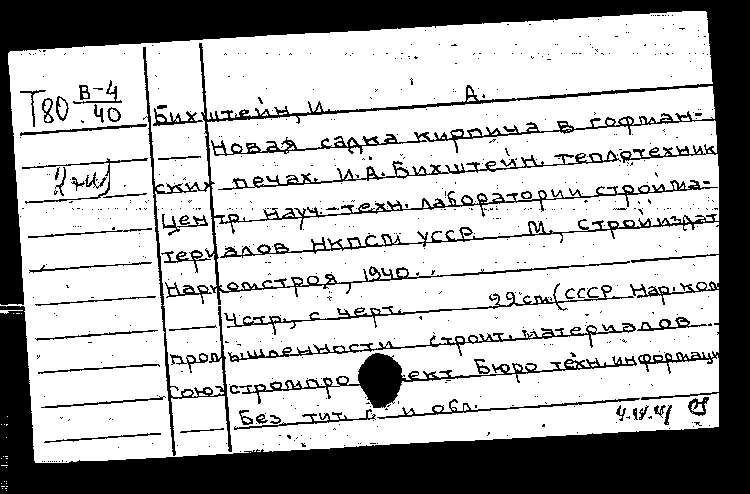 Т80 В-4/40
Бихштейн, И. А.
Новая садка кирпича в гофман-
ских печах. И.А. Бихштейн. теплотехник
Центр. науч.-техн. лаборатории стройма-
териалов НКПСМ УССР М., Стройиздат
Наркомстроя, 1940.
4стр., с черт. 22см (СССР Нар.ком
промышленности строит. материалов
Союзстромпроект. Бюро техн. информации
Без тит. л. и обл.